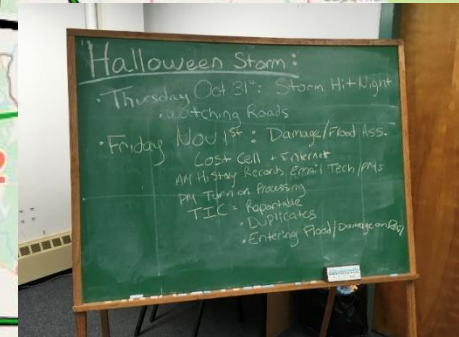 Halloween Storm:
• Thursday Oct 31st: Storm Hit Night
• Watching Roads
• Friday Nov 1st: Damage/Flood Ass.
Lost Cell + Internet
AM History Records Email Tech/PMs
PM Turn on Processing
TIC = Reportable
• Duplicates
• Entering Flood/Damage on